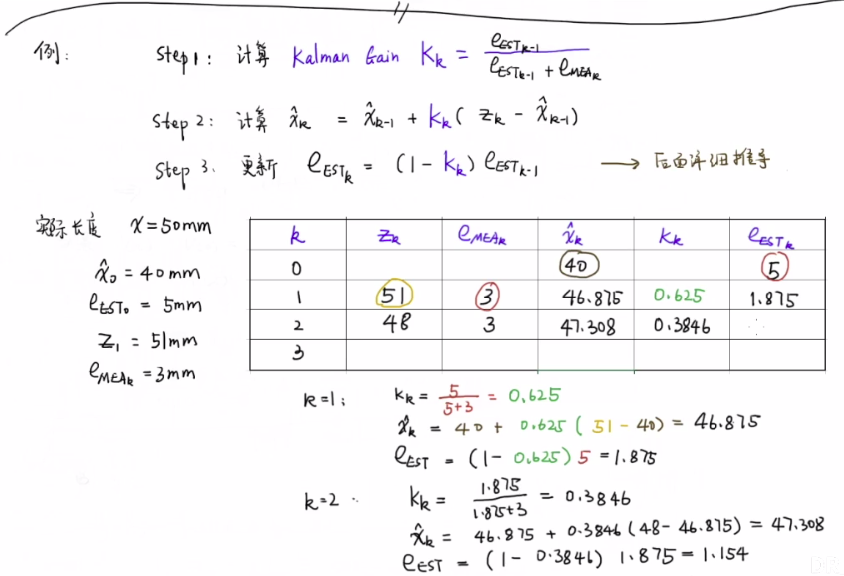 例: Step 1: 计算 Kalman Gain Kₖ = e_ESTₖ₋₁ / (e_ESTₖ₋₁ + e_MEAₖ)
Step 2: 计算 x̂ₖ = x̂ₖ₋₁ + kₖ( zₖ - x̂ₖ₋₁)
Step 3. 更新 e_ESTₖ = (1- kₖ) e_ESTₖ₋₁ → 后面详细推导
实际长度 x=50mm
x̂₀ = 40mm
e_EST₀ = 5mm
z₁ = 51mm
e_MEAₖ = 3mm
k zₖ e_MEAₖ x̂ₖ Kₖ e_ESTₖ
0 40 5
1 51 3 46.875 0.625 1.875
2 48 3 47.308 0.3846
3
k=1: Kₖ = 5 / (5+3) = 0.625
x̂ₖ = 40 + 0.625 ( 51 - 40) = 46.875
e_EST = (1- 0.625) 5 = 1.875
k=2 : Kₖ = 1.875 / (1.875+3) = 0.3846
x̂ₖ = 46.875 + 0.3846 (48 - 46.875) = 47.308
e_EST = (1 - 0.3846) 1.875 = 1.154